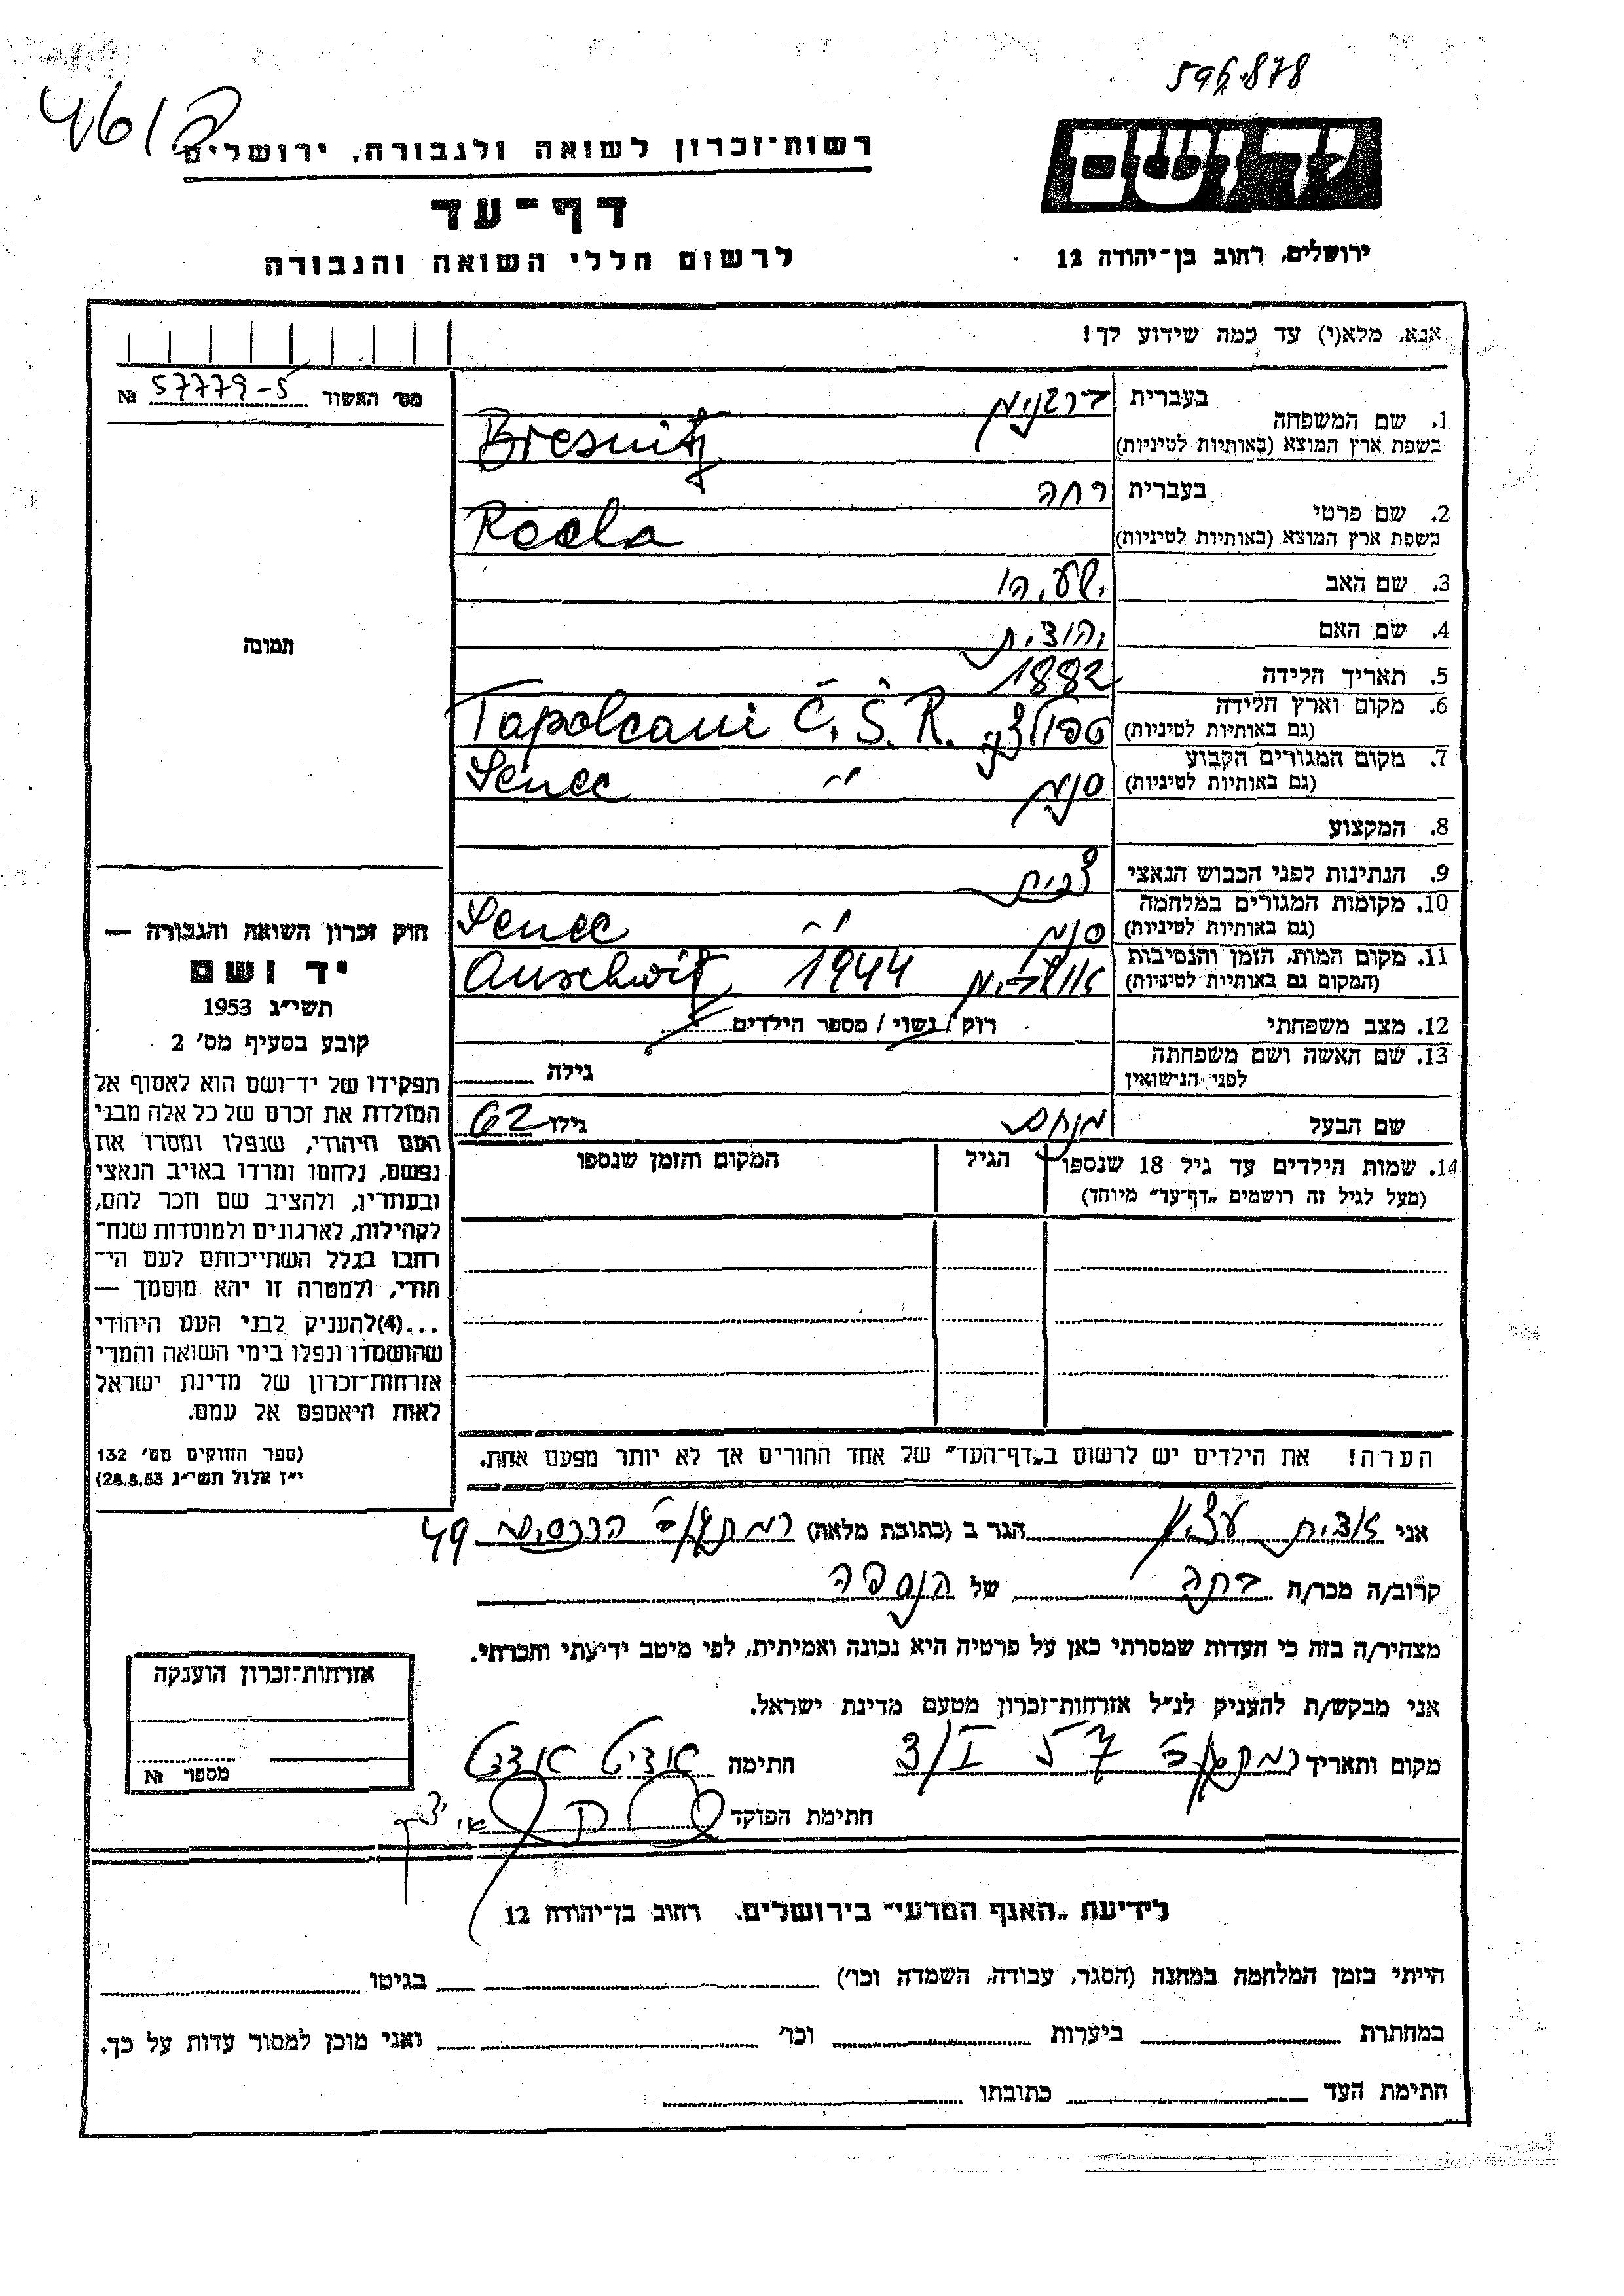 596.878
461
רשות־זכרון לשואה ולגבורה, ירושלים
יד ושם
דף־עד
לרשום חללי השואה והגבורה
ירושלים, רחוב בן־יהודה 12
אנא, מלא(י) עד כמה שידוע לך!
מס׳ האשור 57779-5 №
1. שם המשפחה
בעברית ברזניץ
בשפת ארץ המוצא (באותיות לטיניות) Bresnitz
2. שם פרטי
בעברית רחה
בשפת ארץ המוצא (באותיות לטיניות)
3. שם האב ישעיהו
4. שם האם יהודית
5. תאריך הלידה 1882
6. מקום וארץ הלידה
(גם באותיות לטיניות) Tapolcani Č.S.R.
7. מקום המגורים הקבוע
(גם באותיות לטיניות) סנץ Senec -״-
8. המקצוע
9. הנתינות לפני הכבוש הנאצי צ׳כית
10. מקומות המגורים במלחמה
(גם באותיות לטיניות) סנץ -״- Senec
11. מקום המות, הזמן והנסיבות
(המקום גם באותיות לטיניות) אושביץ 1944 Auschwitz
12. מצב משפחתי רוק / נשוי / מספר הילדים
13. שם האשה ושם משפחתה
לפני הנישואין גילה
שם הבעל מנחם גילו 62
14. שמות הילדים עד גיל 18 שנספו הגיל המקום והזמן שנספו
(מעל לגיל זה רושמים „דף־עד״ מיוחד)
הערה! את הילדים יש לרשום ב„דף־העד״ של אחד ההורים אך לא יותר מפעם אחת.
תמונה
חוק זכרון השואה והגבורה —
יד ושם
תשי״ג 1953
קובע בסעיף מס׳ 2
תפקידו של יד־ושם הוא לאסוף אל
המולדת את זכרם של כל אלה מבני
העם היהודי, שנפלו ומסרו את
נפשם, נלחמו ומרדו באויב הנאצי
ובעוזריו, ולהציב שם וזכר להם,
לקהילות, לארגונים ולמוסדות שנח־
רבו בגלל השתייכותם לעם הי־
הודי, ולמטרה זו יהא מוסמך —
...(4) להעניק לבני העם היהודי
שהושמדו ונפלו בימי השואה והמרי
אזרחות־זכרון של מדינת ישראל
לאות היאספם אל עמם.
(ספר החוקים מס׳ 132
י״ז אלול תשי״ג 28.8.53)
אני הגר ב (כתובת מלאה) רמת גן 49
קרוב/ה מכר/ה בתה של הנספה
מצהיר/ה בזה כי העדות שמסרתי כאן על פרטיה היא נכונה ואמיתית, לפי מיטב ידיעתי והכרתי.
אני מבקש/ת להעניק לנ״ל אזרחות־זכרון מטעם מדינת ישראל.
מקום ותאריך רמת גן 3/I 57 חתימה
חתימת הפוקד
אזרחות־זכרון הוענקה
מספר №
לידיעת „האגף המדעי״ בירושלים, רחוב בן־יהודה 12
הייתי בזמן המלחמה במחנה (הסגר, עבודה, השמדה וכו׳) בגיטו
במחתרת ביערות וכו׳ ואני מוכן למסור עדות על כך.
חתימת העד כתובתו